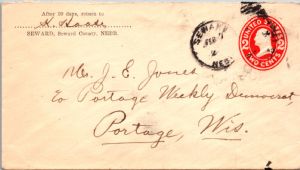 After 10 days, return to
H. Haake
SEWARD, Seward County, NEBR.
SEWARD
NEB.
UNITED STATES
TWO CENTS
2 2
Mr. J. E. Jones
Co Portage Weekly Democrat,
Portage, Wis.